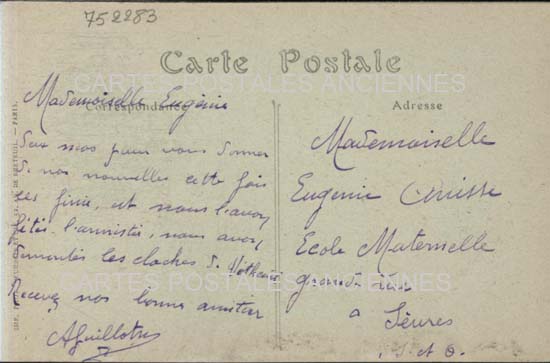 752283
Carte Postale
CARTES POSTALES ANCIENNES
Correspondance
Adresse
Mademoiselle Eugénie
Deux mos pour vous donner
de nos nouvelles cette fois
ses finie, et nous l'avon
fêtés l'armistice, nous avons
remontés les cloches de
Recevez nos bonne amitier
AGuillotin
Mademoiselle
Eugenie
Ecole Maternelle
grande rue
a Sèvres
S et O.
CARTES POSTALES ANCIENNES